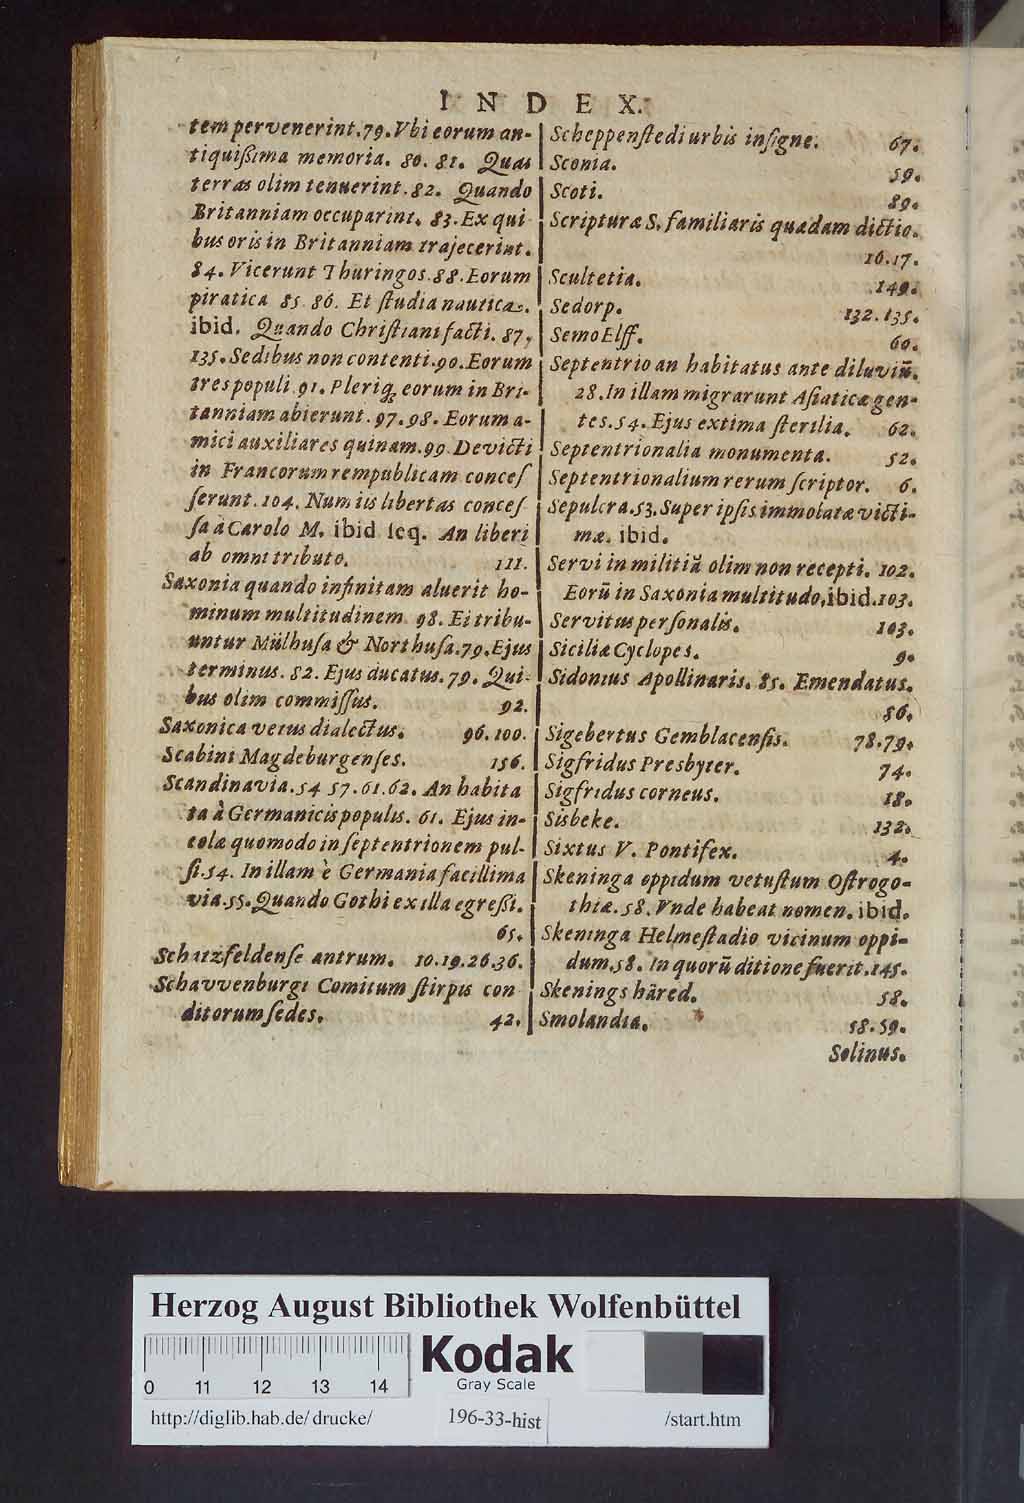 INDEX.
tem pervenerint. 79. Vbi eorum an-
tiquißima memoria. 80. 81. Quas
terras olim tenuerint. 82. Quando
Britanniam occuparint. 83. Ex qui
bus oris in Britanniam trajecerint.
84. Vicerunt Thuringos. 88. Eorum
piratica 85. 86. Et ſtudia nautica.
ibid. Quando Chriſtiani facti. 87,
135. Sedibus non contenti. 90. Eorum
tres populi 91. Pleriq; eorum in Bri-
tanniam abierunt. 97. 98. Eorum a-
mici auxiliares quinam. 99 Devicti
in Francorum rempublicam conceſ
ſerunt. 104. Num iis libertas conceſ
ſa à Carolo M. ibid ſeq. An liberi
ab omni tributo. 111.
Saxonia quando infinitam aluerit ho-
minum multitudinem 98. Ei tribu-
untur Mülhuſa & Northuſa. 79. Ejus
terminus. 82. Ejus ducatus. 79. Qui-
bus olim commiſſus. 92.
Saxonica vetus dialectus. 96. 100.
Scabini Magdeburgenſes. 156.
Scandinavia. 54 57. 61. 62. An habita
ta à Germanicis populis. 61. Ejus in-
colæ quomodo in ſeptentrionem pul-
ſi. 54. In illam è Germania facillima
via. 55. Quando Gothi ex illa egreßi.
65.
Schatzfeldenſe antrum. 10. 19. 26. 36.
Schavvenburgi Comitum ſtirpis con
ditorum ſedes. 42.
Scheppenſtedi urbis inſigne. 67.
Sconia. 59.
Scoti. 89.
Scripturæ S. familiaris quædam dictio.
16. 17.
Scultetia. 149.
Sedorp. 132. 135.
Semo Elff. 60.
Septentrio an habitatus ante diluviū.
28. In illam migrarunt Aſiaticæ gen-
tes. 54. Ejus extima ſterilia. 62.
Septentrionalia monumenta. 52.
Septentrionalium rerum ſcriptor. 6.
Sepulcra. 53. Super ipſis immolatæ victi-
mæ. ibid.
Servi in militiā olim non recepti. 102.
Eorū in Saxonia multitudo, ibid. 103.
Servitus perſonalis. 103.
Siciliæ Cyclopes. 9.
Sidonius Apollinaris. 85. Emendatus.
86.
Sigebertus Gemblacenſis. 78. 79.
Sigfridus Presbyter. 74.
Sigfridus corneus. 18.
Sisbeke. 132.
Sixtus V. Pontifex. 4.
Skeninga oppidum vetuſtum Oſtrogo-
thiæ. 58. Vnde habeat nomen. ibid.
Skeninga Helmeſtadio vicinum oppi-
dum. 58. In quorū ditione fuerit. 145.
Skenings häred. 58.
Smolandia. 58. 59.
Solinus.
Herzog August Bibliothek Wolfenbüttel
Kodak
Gray Scale
0 11 12 13 14
http://diglib.hab.de/drucke/ 196-33-hist /start.htm